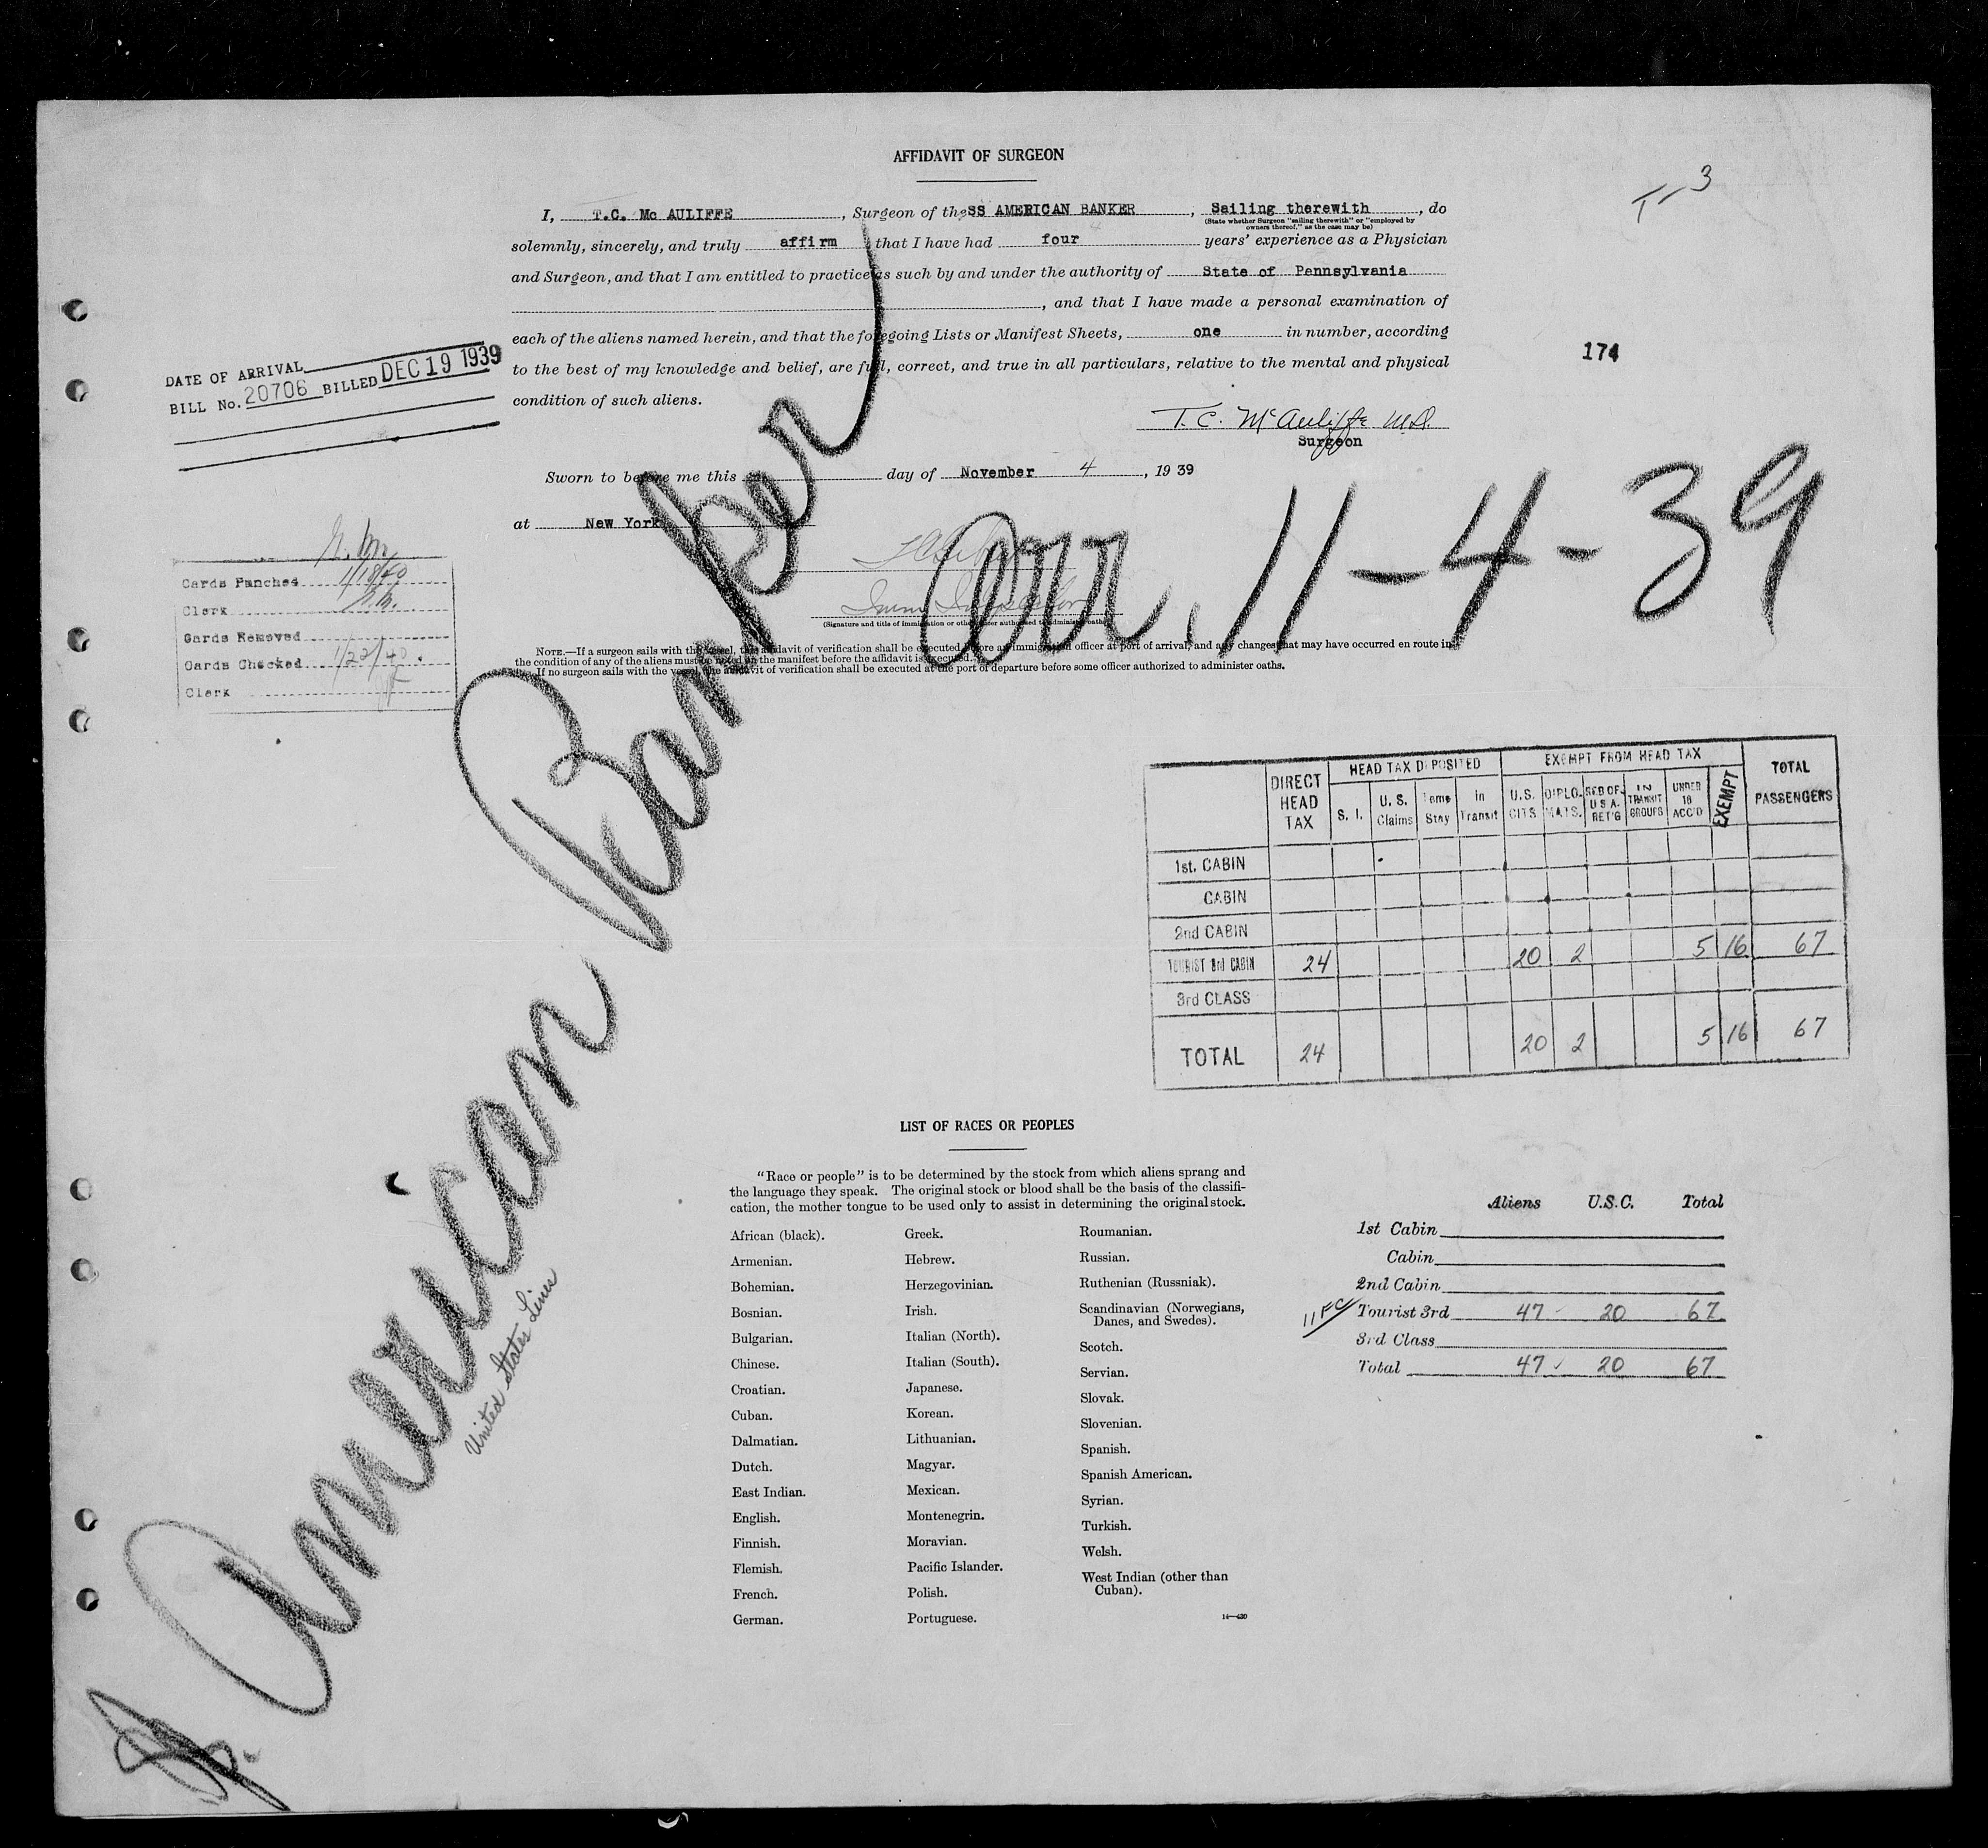 AFFIDAVIT OF SURGEON
T 3
I, T.C. Mc AULIFFE, Surgeon of the SS AMERICAN BANKER, Sailing therewith, do
(State whether Surgeon "sailing therewith" or "employed by
owners thereof," as the case may be)
solemnly, sincerely, and truly affirm that I have had four years' experience as a Physician
and Surgeon, and that I am entitled to practice as such by and under the authority of State of Pennsylvania
, and that I have made a personal examination of
each of the aliens named herein, and that the foregoing Lists or Manifest Sheets, one in number, according
to the best of my knowledge and belief, are full, correct, and true in all particulars, relative to the mental and physical
condition of such aliens.
174
DATE OF ARRIVAL
BILL No. 20706 BILLED DEC 19 1939
T. C. McAuliffe M.D.
Surgeon
Sworn to before me this day of November 4, 1939
at New York
Arr. 11-4-39
Cards Punched 1/18/40
Clerk
Cards Removed
Cards Checked 1/22/40.
Clerk
(Signature and title of immigration or other officer authorized to administer oaths)
NOTE.—If a surgeon sails with the vessel, this affidavit of verification shall be executed before an immigration officer at port of arrival, and any changes that may have occurred en route in
the condition of any of the aliens must be noted on the manifest before the affidavit is executed.
If no surgeon sails with the vessel, the affidavit of verification shall be executed at the port of departure before some officer authorized to administer oaths.
S. S. American Banker
United States Lines
DIRECT HEAD TAX
HEAD TAX DEPOSITED
EXEMPT FROM HEAD TAX
TOTAL PASSENGERS
S. I. U. S. Claims Temp Stay In Transit U.S. CITS DIPLO. MATS. RES OF U S A. RET'G IN TRANSIT GROUPS UNDER 16 ACC'D EXEMPT
1st. CABIN
CABIN
2nd CABIN
TOURIST 3rd CABIN 24 20 2 5 16 67
3rd CLASS
TOTAL 24 20 2 5 16 67
LIST OF RACES OR PEOPLES
"Race or people" is to be determined by the stock from which aliens sprang and
the language they speak. The original stock or blood shall be the basis of the classifi-
cation, the mother tongue to be used only to assist in determining the original stock.
African (black).
Armenian.
Bohemian.
Bosnian.
Bulgarian.
Chinese.
Croatian.
Cuban.
Dalmatian.
Dutch.
East Indian.
English.
Finnish.
Flemish.
French.
German.
Greek.
Hebrew.
Herzegovinian.
Irish.
Italian (North).
Italian (South).
Japanese.
Korean.
Lithuanian.
Magyar.
Mexican.
Montenegrin.
Moravian.
Pacific Islander.
Polish.
Portuguese.
Roumanian.
Russian.
Ruthenian (Russniak).
Scandinavian (Norwegians,
Danes, and Swedes).
Scotch.
Servian.
Slovak.
Slovenian.
Spanish.
Spanish American.
Syrian.
Turkish.
Welsh.
West Indian (other than
Cuban).
Aliens U.S.C. Total
1st Cabin
Cabin
2nd Cabin
Tourist 3rd 47 20 67
3rd Class
Total 47 20 67